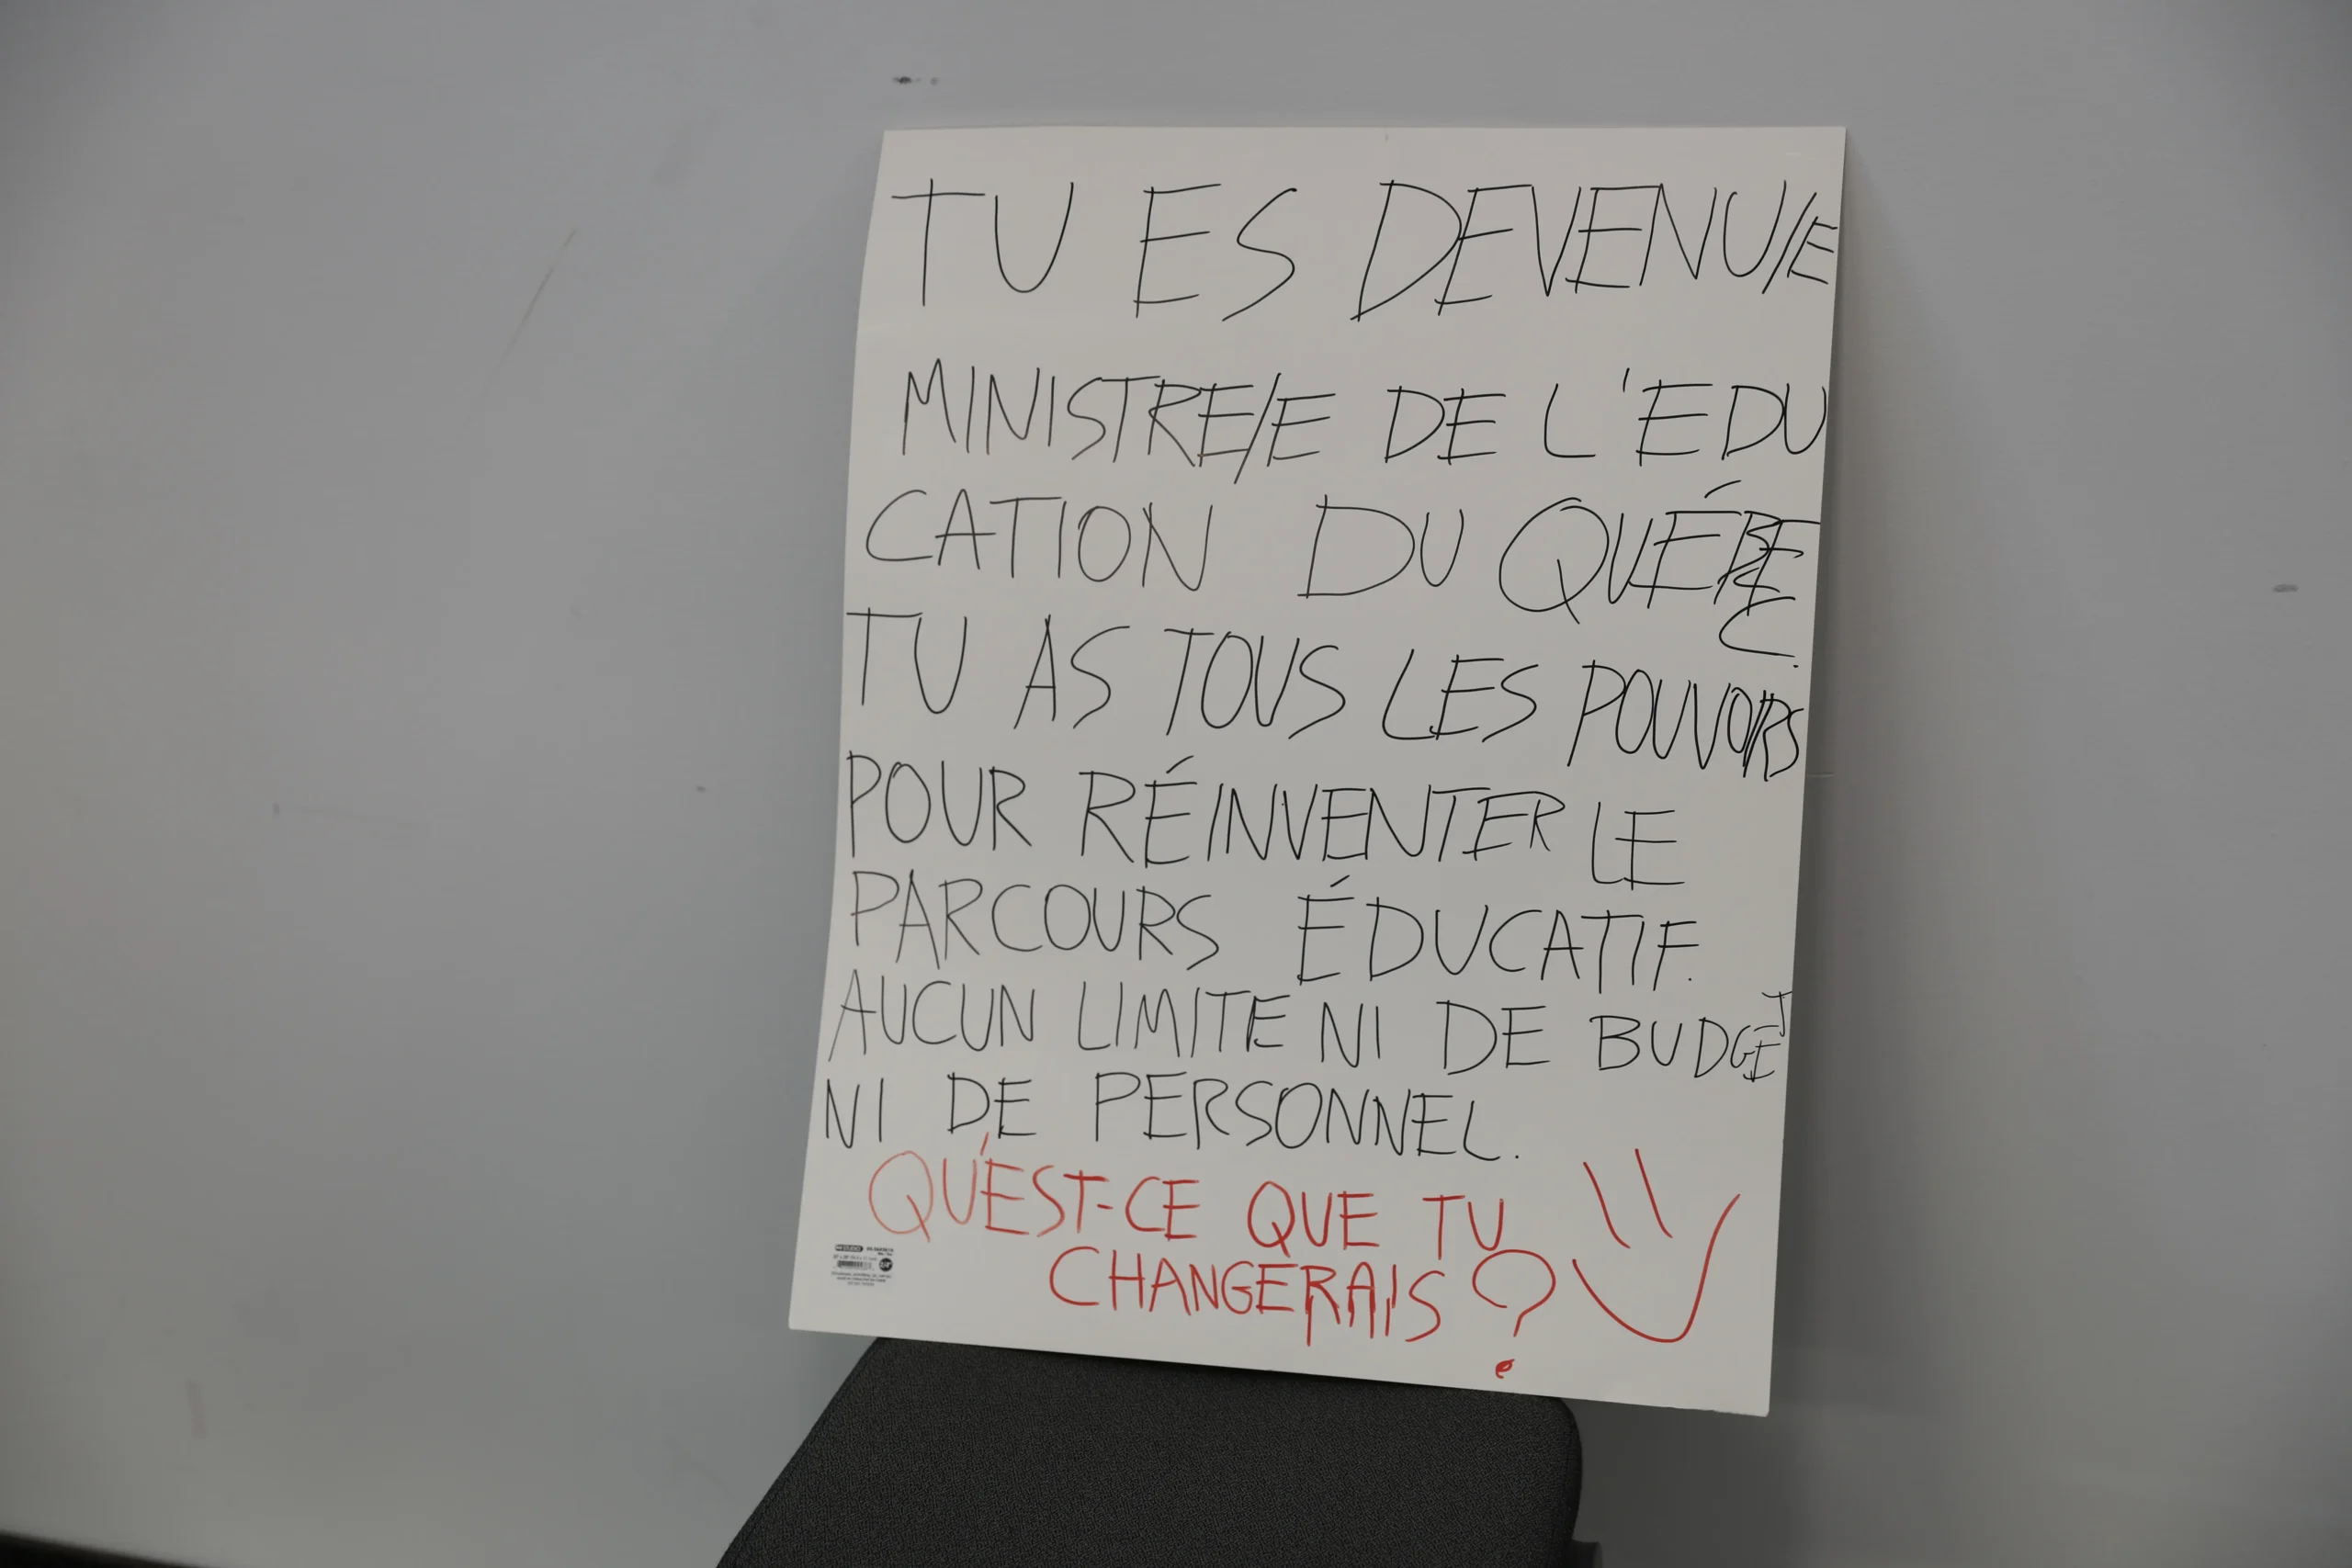 TU ES DEVENU/E
MINISTRE/E DE L'EDU
CATION DU QUÉBEC.
TU AS TOUS LES POUVOIRS
POUR RÉINVENTER LE
PARCOURS ÉDUCATIF.
AUCUN LIMITE NI DE BUDGET
NI DE PERSONNEL.
QU'EST-CE QUE TU
CHANGERAIS ?